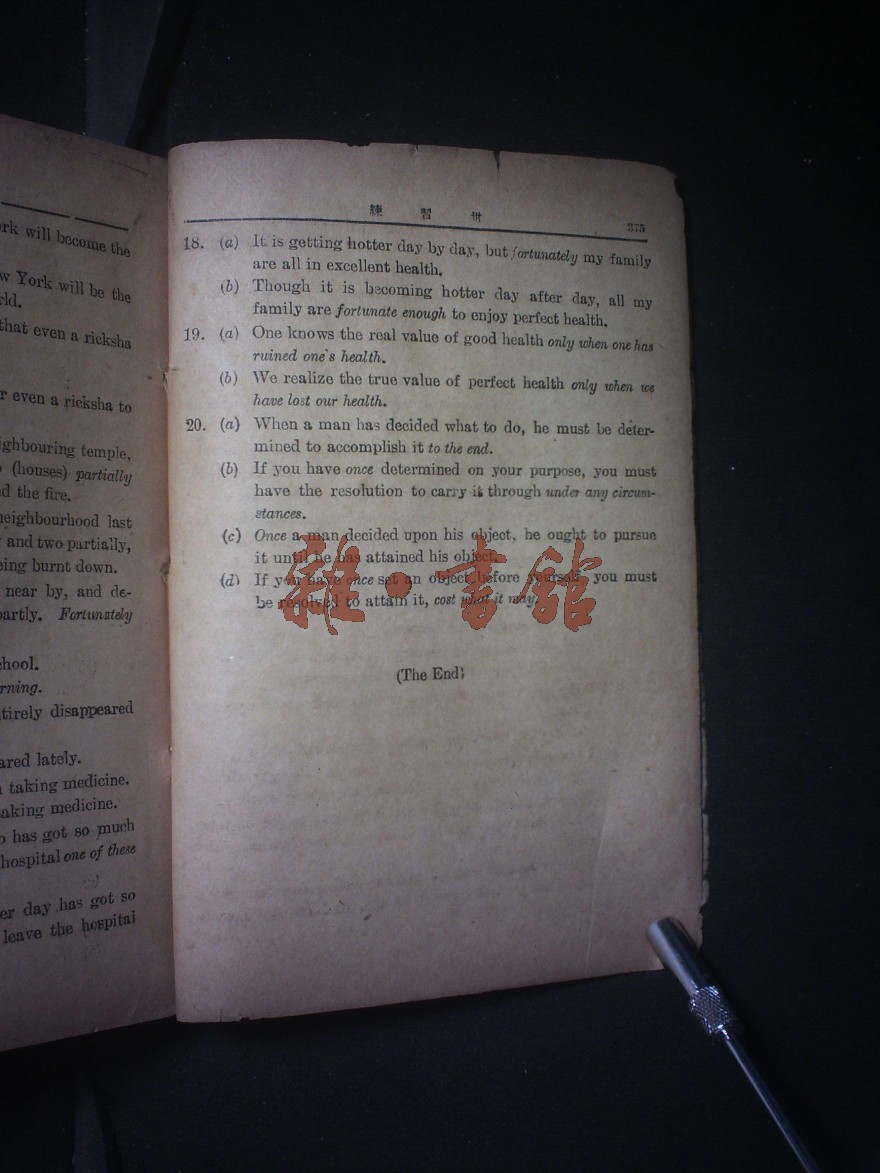 rk will become the
w York will be the
rld.
that even a ricksha
r even a ricksha to
ighbouring temple,
(houses) partially
d the fire.
neighbourhood last
and two partially,
eing burnt down.
near by, and de-
partly. Fortunately
chool.
rning.
tirely disappeared
ared lately.
taking medicine.
aking medicine.
has got so much
hospital one of these
er day has got so
leave the hospital
練 習 卅 375
18. (a) It is getting hotter day by day, but fortunately my family
are all in excellent health.
(b) Though it is becoming hotter day after day, all my
family are fortunate enough to enjoy perfect health.
19. (a) One knows the real value of good health only when one has
ruined one's health.
(b) We realize the true value of perfect health only when we
have lost our health.
20. (a) When a man has decided what to do, he must be deter-
mined to accomplish it to the end.
(b) If you have once determined on your purpose, you must
have the resolution to carry it through under any circum-
stances.
(c) Once a man decided upon his object, he ought to pursue
it until he has attained his object.
(d) If you have once set an object before yourself, you must
be resolved to attain it, cost what it may.
雜·書館
(The End)